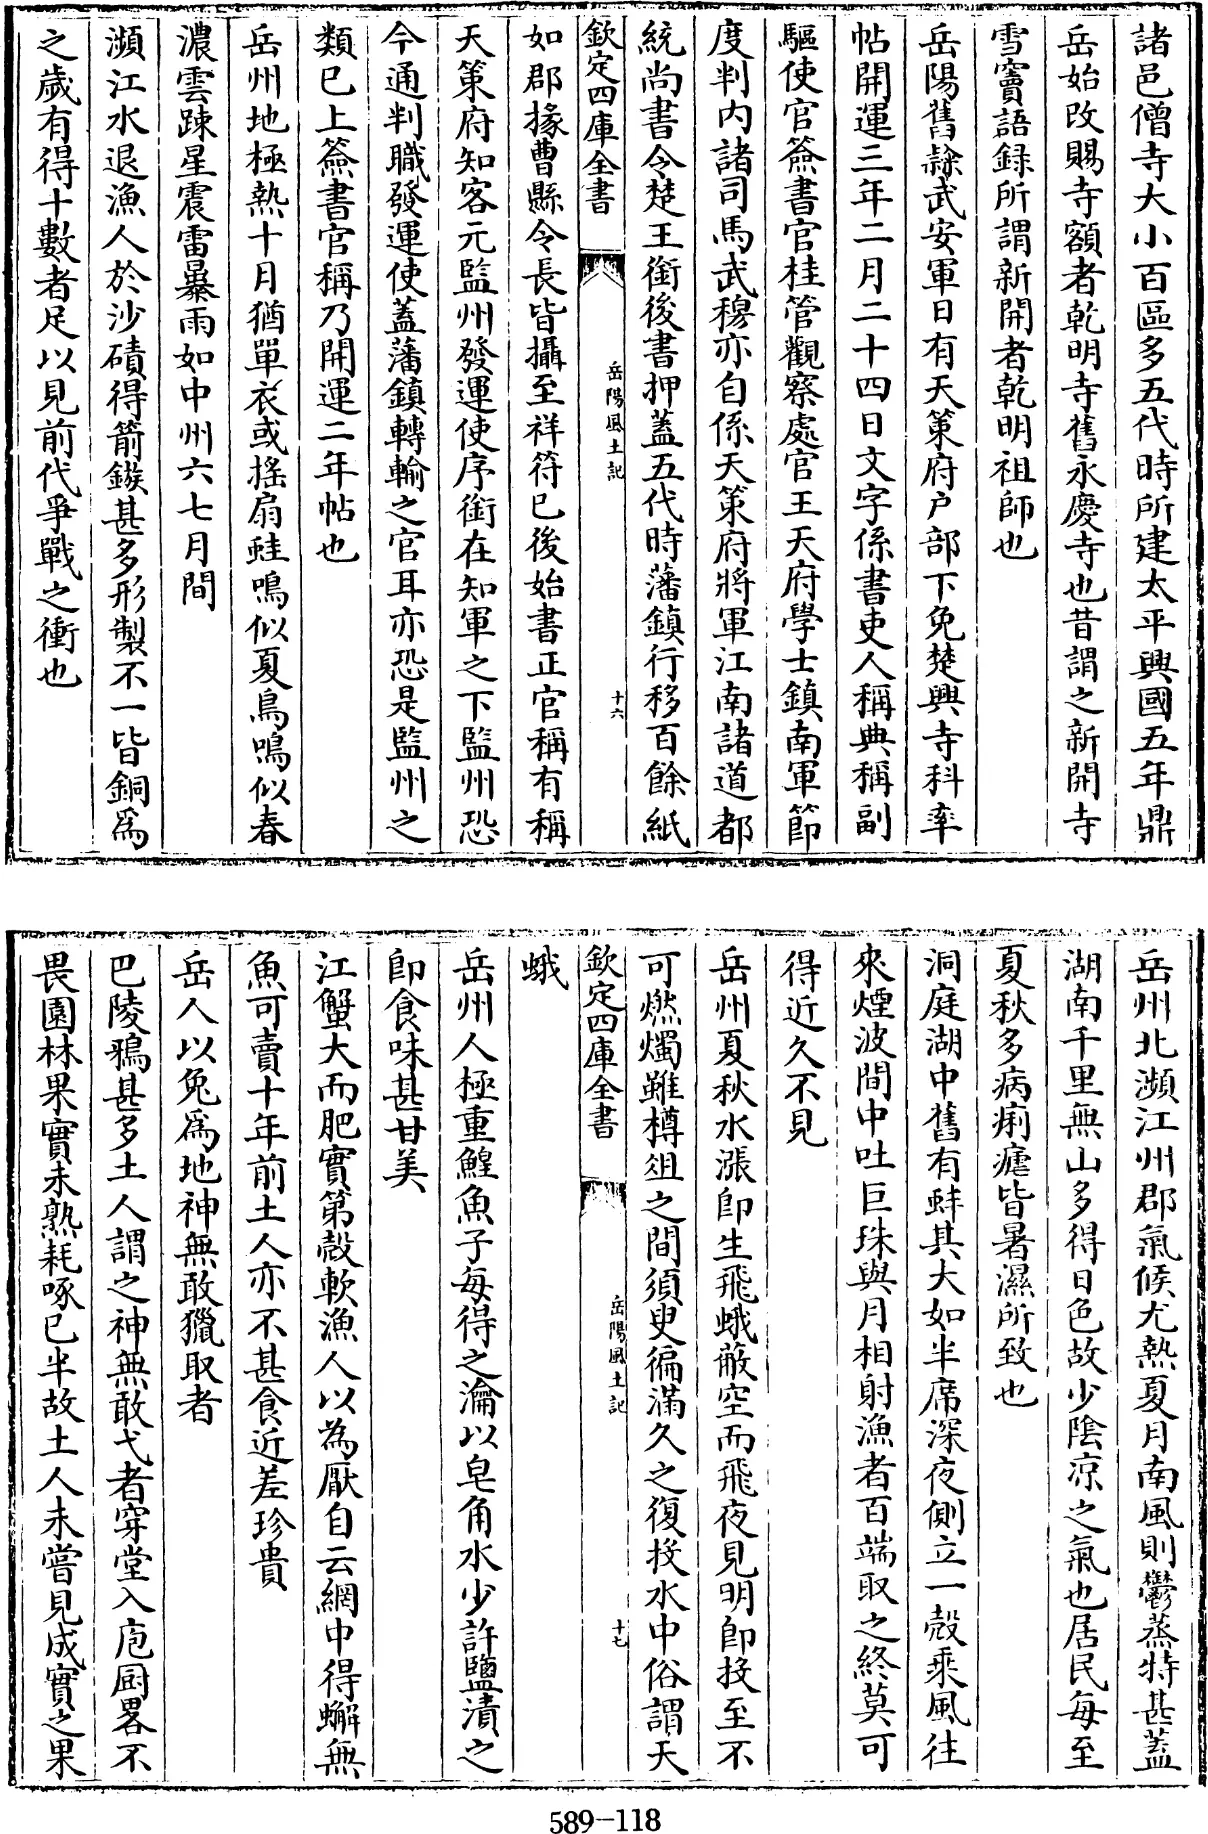 諸邑僧寺大小百區多五代時所建太平興國五年鼎
岳始改賜寺額者乾明寺舊永慶寺也昔謂之新開寺
雪竇語録所謂新開者乾明祖師也
岳陽舊隸武安軍日有天策府户部下免楚興寺科率
帖開運三年二月二十四日文字係書吏人稱典稱副
驅使官簽書官桂管觀察處官王天府學士鎮南軍節
度判内諸司馬武穆亦自係天策府將軍江南諸道都
統尚書令楚王銜後書押蓋五代時藩鎮行移百餘紙
欽定四庫全書
岳陽風土記
十六
如郡掾曹縣令長皆攝至祥符已後始書正官稱有稱
天策府知客元監州發運使序銜在知軍之下監州恐
今通判職發運使蓋藩鎮轉輸之官耳亦恐是監州之
類已上簽書官稱乃開運二年帖也
岳州地極熱十月猶單衣或摇扇蛙鳴似夏鳥鳴似春
濃雲踈星震雷暴雨如中州六七月間
瀕江水退漁人於沙磧得箭鏃甚多形製不一皆銅爲
之歲有得十數者足以見前代爭戰之衝也
岳州北瀕江州郡氣候尤熱夏月南風則鬱蒸特甚蓋
湖南千里無山多得日色故少陰凉之氣也居民每至
夏秋多病痢瘧皆暑濕所致也
洞庭湖中舊有蚌其大如半席深夜側立一殻乘風往
來煙波間中吐巨珠與月相射漁者百端取之終莫可
得近久不見
岳州夏秋水漲即生飛蛾蔽空而飛夜見明即投至不
可燃燭雖樽俎之間須臾徧滿久之復投水中俗謂天
欽定四庫全書
岳陽風土記
十七
蛾
岳州人極重鰉魚子每得之瀹以皂角水少許鹽漬之
即食味甚甘美
江蟹大而肥實第殻軟漁人以為厭自云網中得蠏無
魚可賣十年前土人亦不甚食近差珍貴
岳人以兔爲地神無敢獵取者
巴陵鴉甚多土人謂之神無敢弋者穿堂入庖厨畧不
畏園林果實未熟耗啄已半故土人未嘗見成實之果
589-118